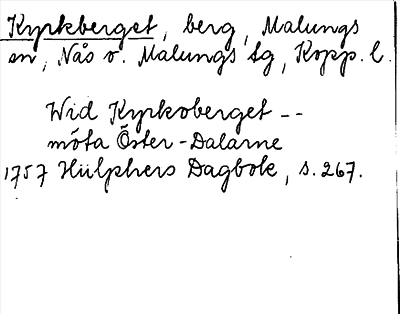 Kyrkberget, berg, Malungs
sn, Nås o. Malungs tg, Kopp. l.
Wid Kyrkoberget --
möta Öster-Dalarne
1757 Hülphers Dagbok, s. 267.